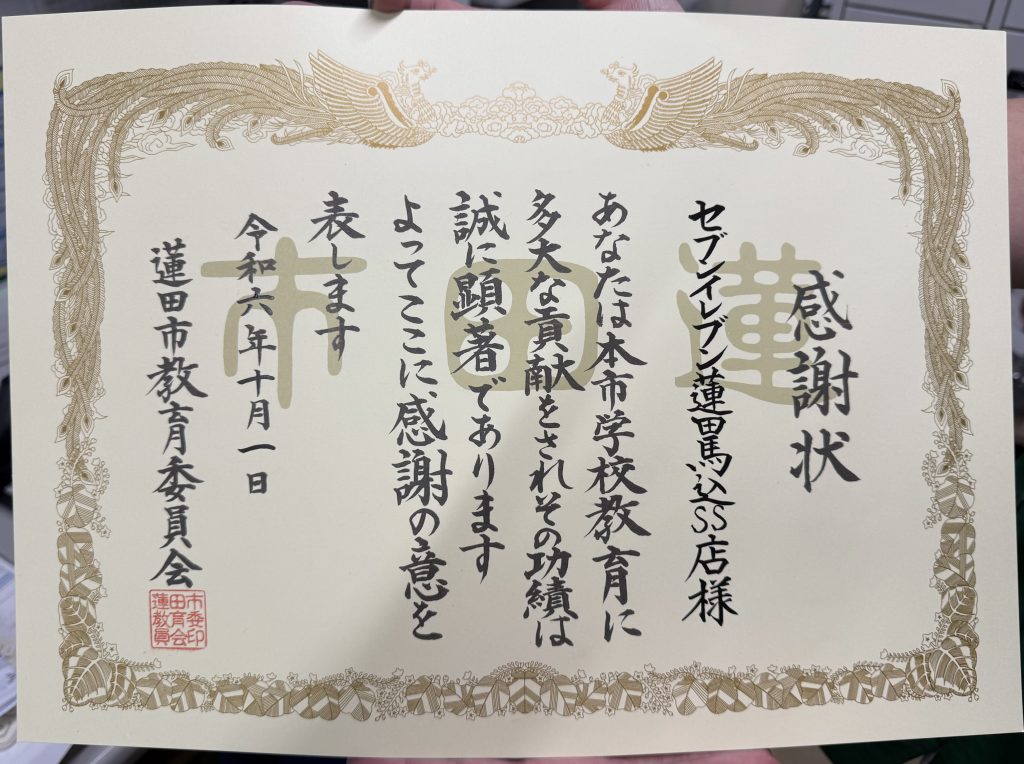 感謝状
セブンイレブン蓮田馬込SS店様
あなたは本市学校教育に
多大な貢献をされその功績は
誠に顕著であります
よってここに感謝の意を
表します
令和六年十月一日
蓮田市教育委員会
蓮田市
市委印
田育会
蓮教員